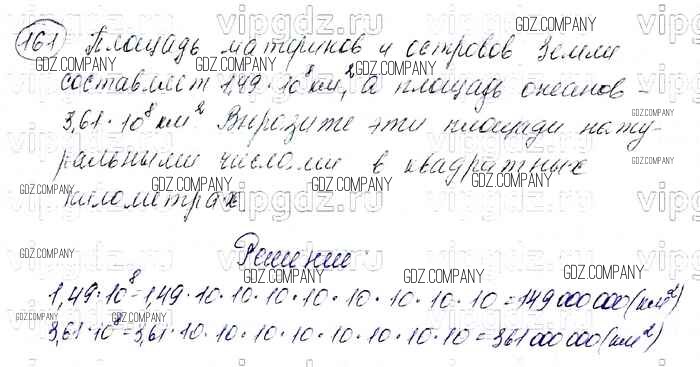 161 Площадь материков и островов Земли
составляет 1,49 · 10⁸ км², а площадь океанов -
3,61 · 10⁸ км² Выразите эти площади нату-
ральными числами в квадратных
километрах.
Решение:
1,49·10⁸=1,49·10·10·10·10·10·10·10·10=149 000 000 (км²)
3,61·10⁸=3,61·10·10·10·10·10·10·10·10=361 000 000 (км²)